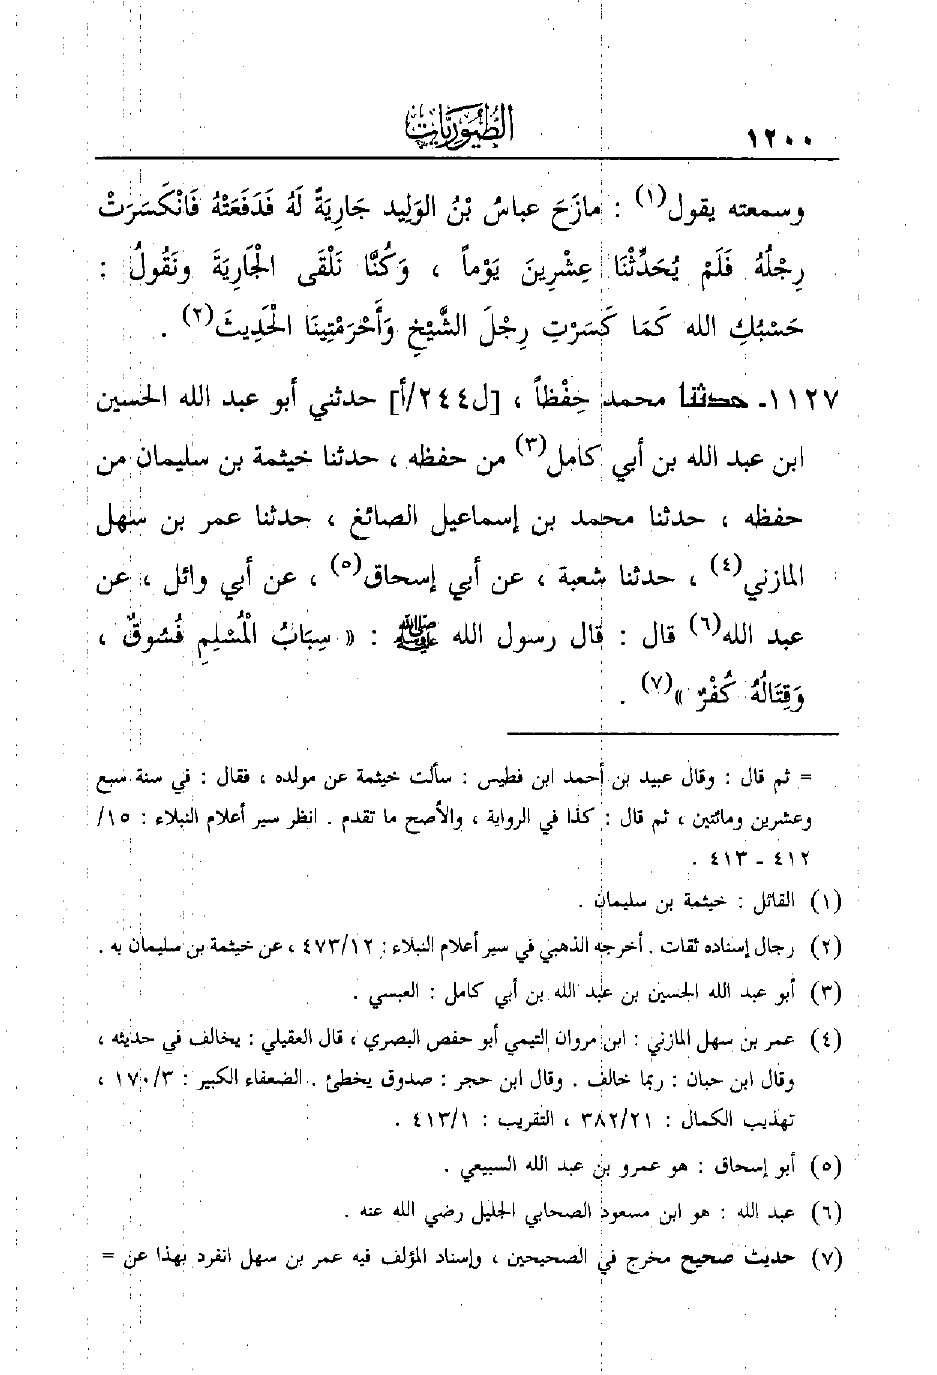 ١٢٠٠
الطيوريات
وسمعته يقول(١) : مازَحَ عباسُ بْنُ الوَلِيد جَارِيَةً لَهُ فَدَفَعَتْهُ فَانْكَسَرَتْ
رِجْلُهُ فَلَمْ يُحَدِّثْنَا عِشْرِينَ يَوْماً ، وَكُنَّا نَلْقَى الْجَارِيَةَ ونَقُولُ :
حَسْبُكِ الله كَمَا كَسَرْتِ رِجْلَ الشَّيْخِ وَأَحْرَمْتِينَا الْحَدِيثَ(٢) .
١١٢٧- حدثنا محمد حِفْظاً ، [ل٢٤٤/أ] حدثني أبو عبد الله الحسين
ابن عبد الله بن أبي كامل(٣) من حفظه ، حدثنا خيثمة بن سليمان من
حفظه ، حدثنا محمد بن إسماعيل الصائغ ، حدثنا عمر بن سهل
المازني(٤) ، حدثنا شعبة ، عن أبي إسحاق(٥) ، عن أبي وائل ، عن
عبد الله(٦) قال : قال رسول الله ﷺ : « سِبَابُ الْمُسْلِمِ فُسُوقٌ ،
وَقِتَالُهُ كُفْرٌ »(٧) .
= ثم قال : وقال عبيد بن أحمد ابن فطيس : سألت خيثمة عن مولده ، فقال : في سنة سبع
وعشرين ومائتين ، ثم قال : كذا في الرواية ، والأصح ما تقدم . انظر سير أعلام النبلاء : ١٥/
٤١٢ - ٤١٣ .
(١) القائل : خيثمة بن سليمان .
(٢) رجال إسناده ثقات . أخرجه الذهبي في سير أعلام النبلاء : ٤٧٣/١٢ ، عن خيثمة بن سليمان به .
(٣) أبو عبد الله الحسين بن عبد الله بن أبي كامل : العبسي .
(٤) عمر بن سهل المازني : ابن مروان التيمي أبو حفص البصري ، قال العقيلي : يخالف في حديثه ،
وقال ابن حبان : ربما خالف . وقال ابن حجر : صدوق يخطئ . الضعفاء الكبير : ١٧٠/٣ ،
تهذيب الكمال : ٣٨٢/٢١ ، التقريب : ٤١٣/١ .
(٥) أبو إسحاق : هو عمرو بن عبد الله السبيعي .
(٦) عبد الله : هو ابن مسعود الصحابي الجليل رضي الله عنه .
(٧) حديث صحيح مخرج في الصحيحين ، وإسناد المؤلف فيه عمر بن سهل انفرد بهذا عن =